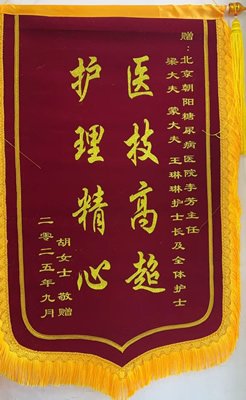 赠：北京朝阳糖尿病医院李芳主任
梁大夫 蒙大夫 王琳琳护士长及全体护士
医技高超
护理精心
胡女士 敬赠
二零二五年九月